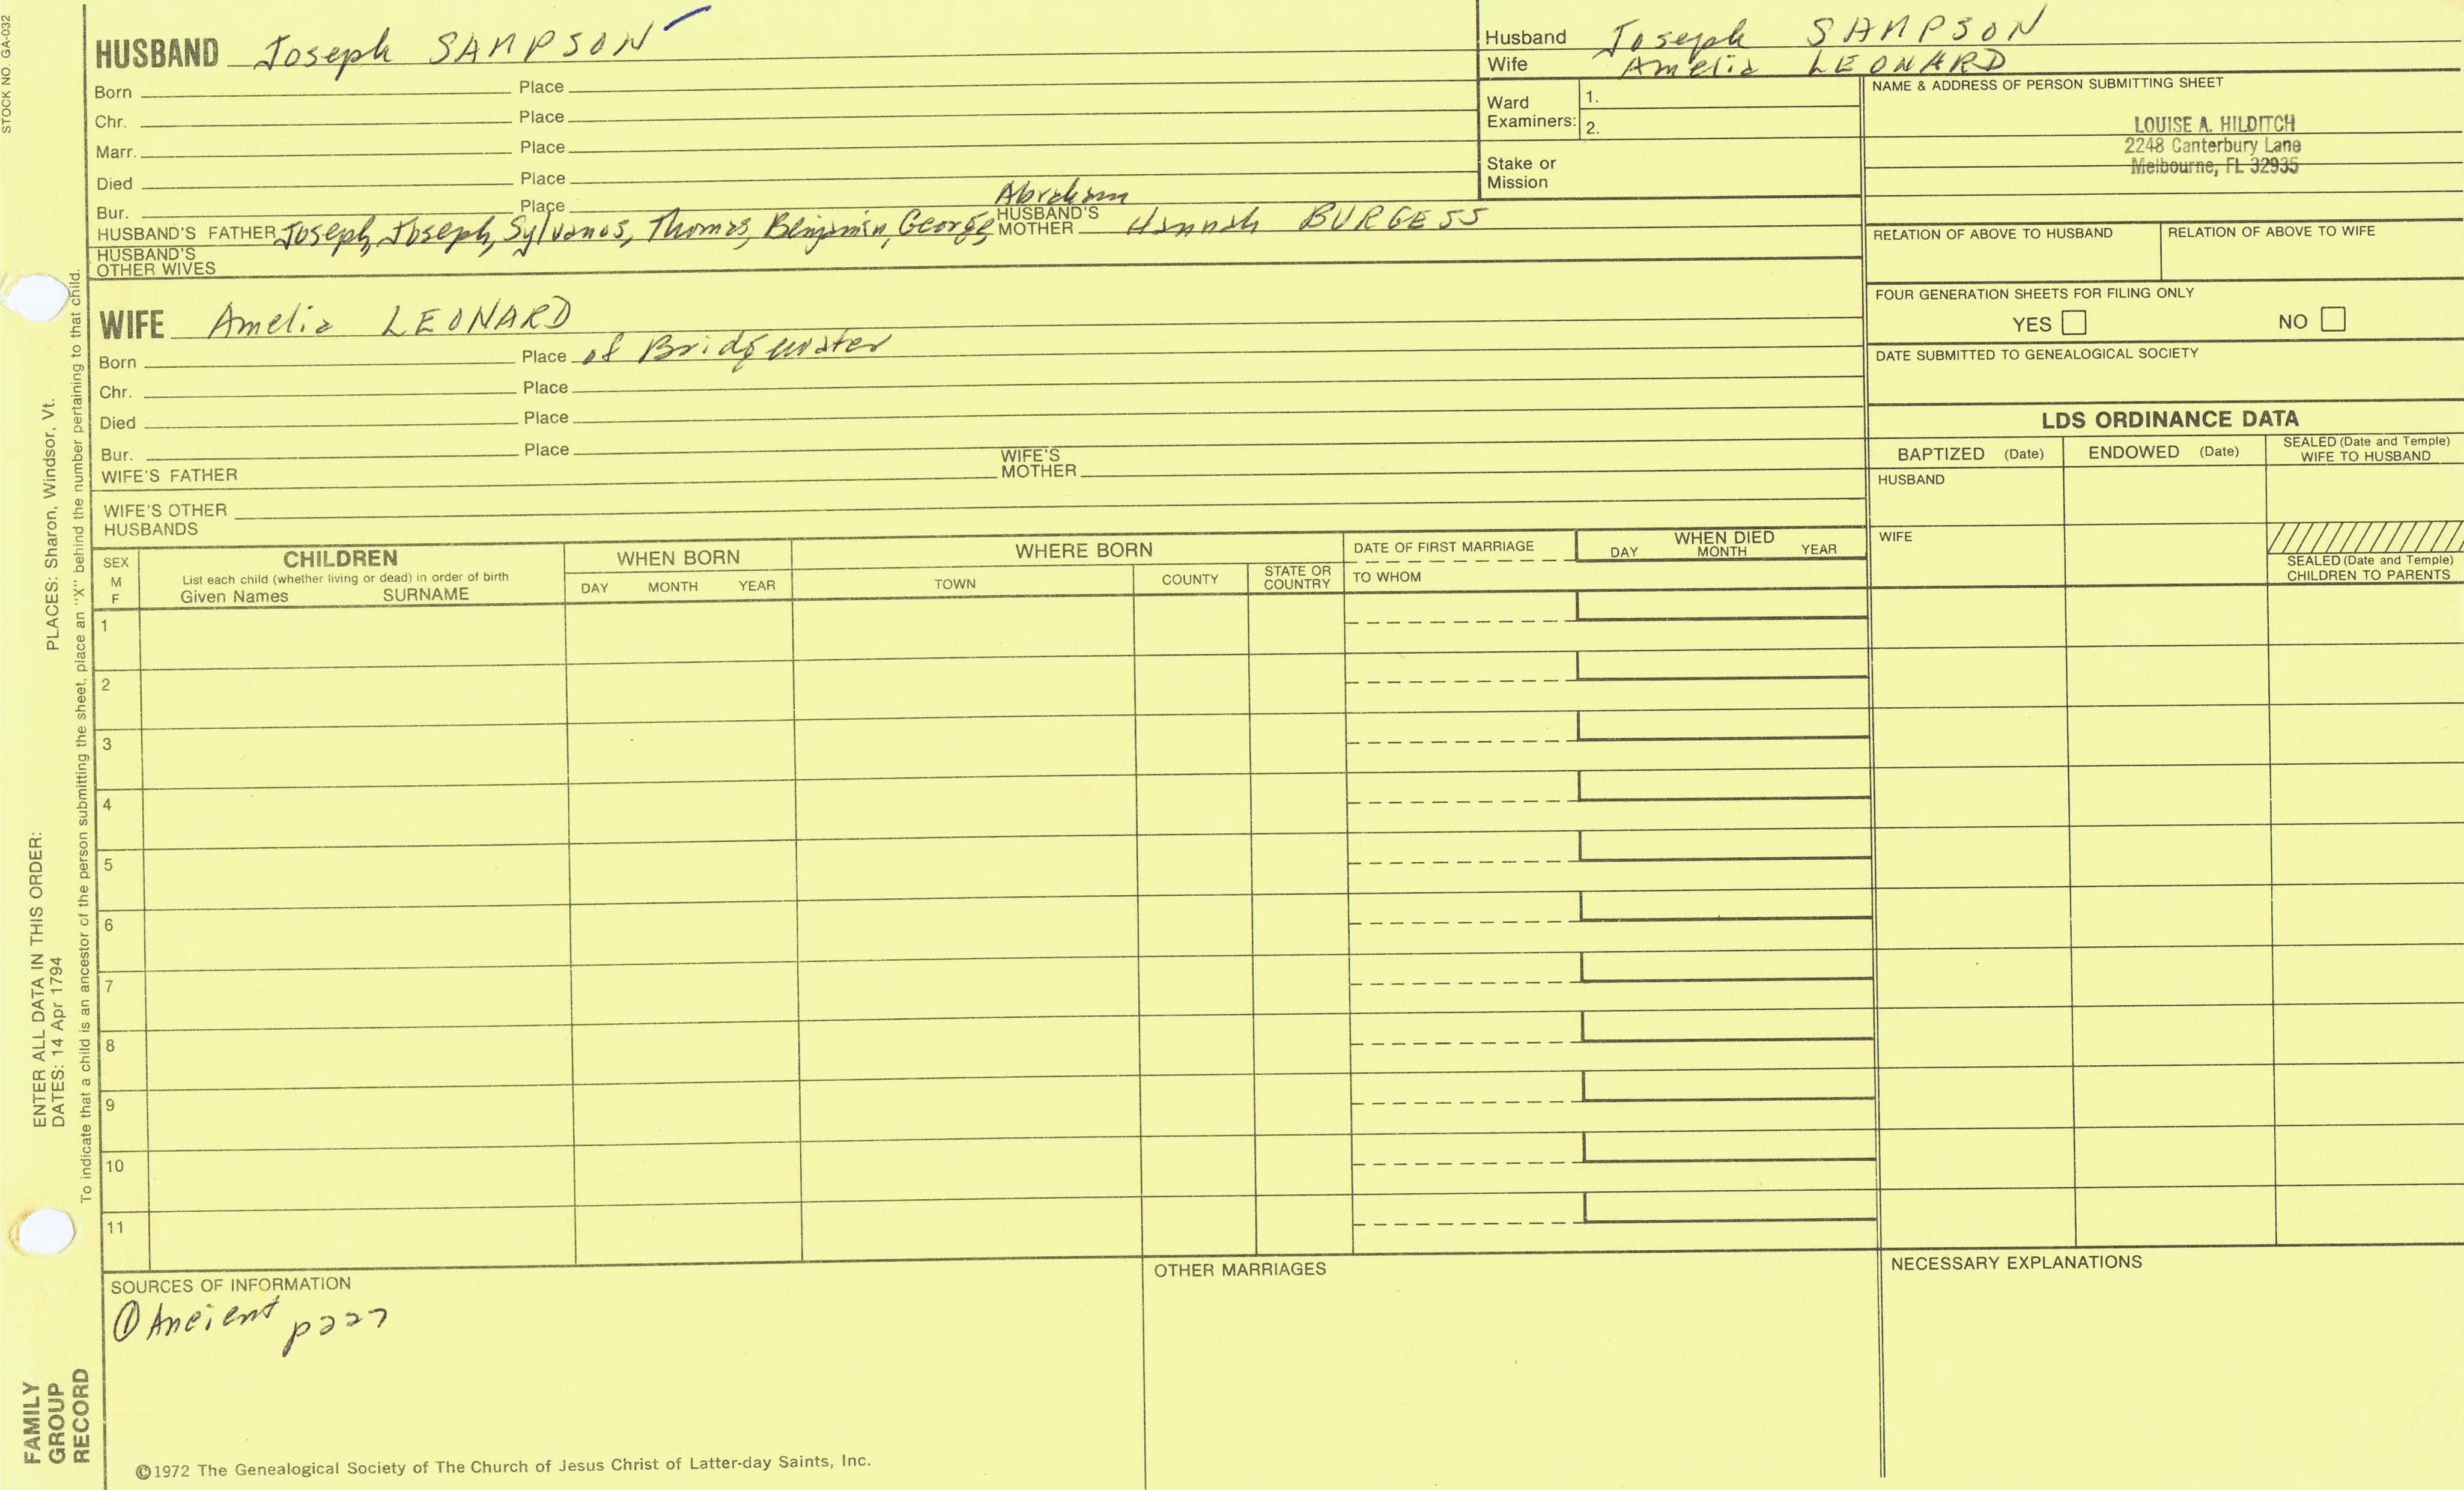 STOCK NO GA-032
HUSBAND Joseph SAMPSON
Born Place
Chr. Place
Marr. Place
Died Place
Bur. Place
Abraham
HUSBAND'S FATHER Joseph, Joseph, Sylvanos, Thomas, Benjamin, George, HUSBAND'S MOTHER Hannah BURGESS
HUSBAND'S OTHER WIVES
WIFE Amelia LEONARD
Born Place of Bridgewater
Chr. Place
Died Place
Bur. Place
WIFE'S FATHER WIFE'S MOTHER
WIFE'S OTHER HUSBANDS
Husband Joseph SAMPSON
Wife Amelia LEONARD
Ward Examiners: 1.
2.
Stake or Mission
NAME & ADDRESS OF PERSON SUBMITTING SHEET
LOUISE A. HILDITCH
2248 Canterbury Lane
Melbourne, FL 32935
RELATION OF ABOVE TO HUSBAND RELATION OF ABOVE TO WIFE
FOUR GENERATION SHEETS FOR FILING ONLY
YES NO
DATE SUBMITTED TO GENEALOGICAL SOCIETY
LDS ORDINANCE DATA
BAPTIZED (Date) ENDOWED (Date) SEALED (Date and Temple) WIFE TO HUSBAND
HUSBAND
WIFE
SEALED (Date and Temple) CHILDREN TO PARENTS
SEX M F
CHILDREN
List each child (whether living or dead) in order of birth
Given Names SURNAME
WHEN BORN
DAY MONTH YEAR
WHERE BORN
TOWN COUNTY STATE OR COUNTRY
DATE OF FIRST MARRIAGE
TO WHOM
WHEN DIED
DAY MONTH YEAR
1
2
3
4
5
6
7
8
9
10
11
SOURCES OF INFORMATION
① Ancient p227
OTHER MARRIAGES
NECESSARY EXPLANATIONS
©1972 The Genealogical Society of The Church of Jesus Christ of Latter-day Saints, Inc.
FAMILY GROUP RECORD
ENTER ALL DATA IN THIS ORDER:
DATES: 14 Apr 1794 PLACES: Sharon, Windsor, Vt.
To indicate that a child is an ancestor of the person submitting the sheet, place an "X" behind the number pertaining to that child.